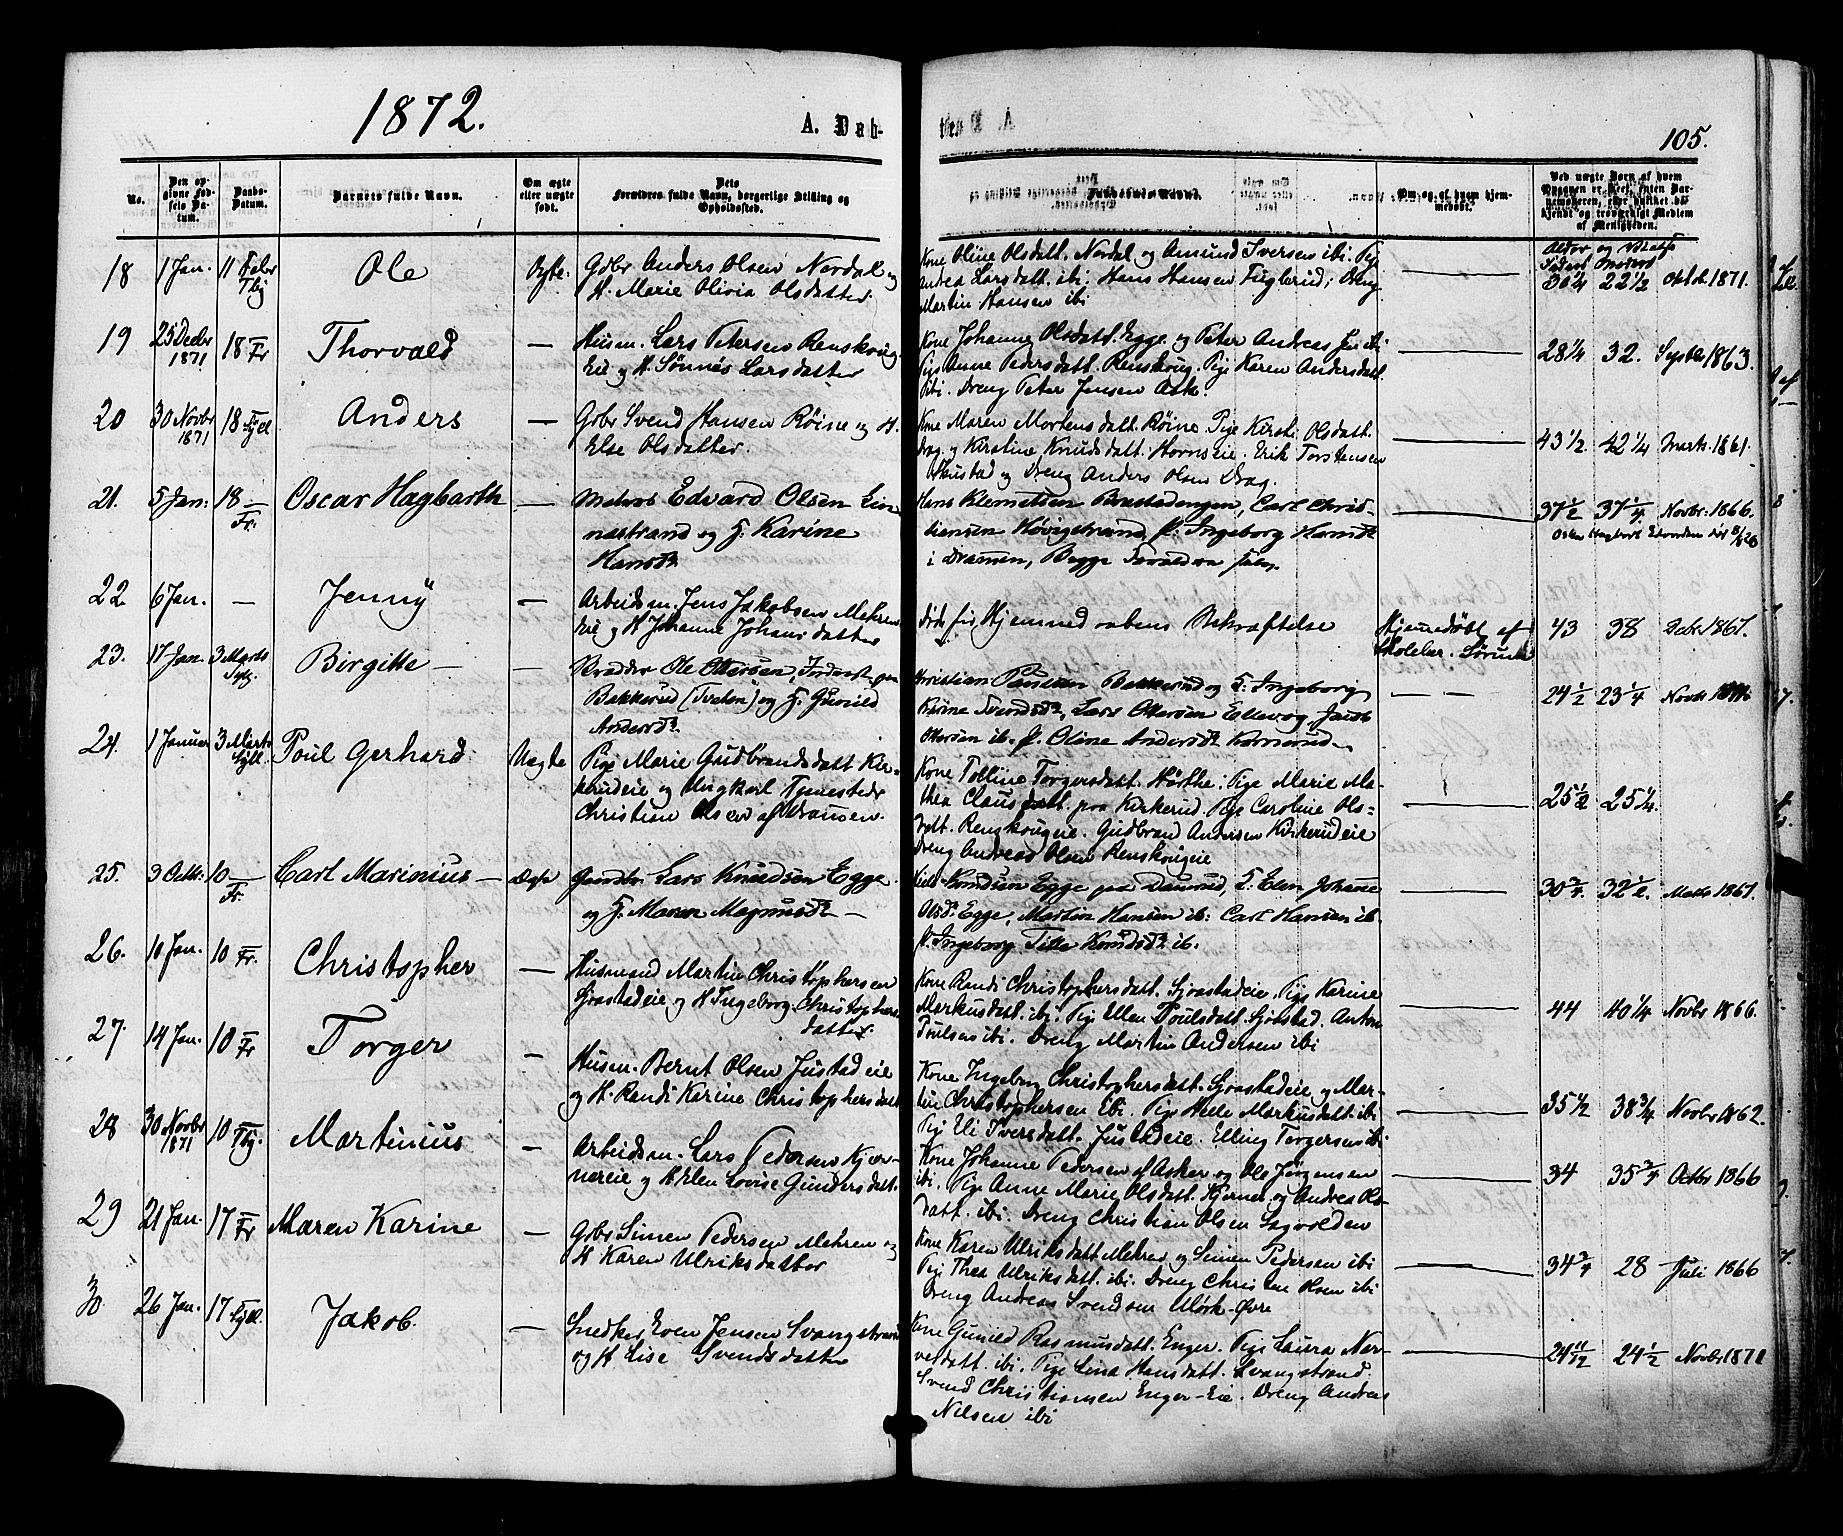 1872.
A. Dab-
105.
No.
Den opgivne Fødsels Datum.
Daabs-Datum.
Barnets fulde Navn.
Om ægte eller uægte født.
Dets Forældres fulde Navn, borgerlige Stilling og Opholdssted.
Faddernes Navne.
Om og af hvem hjemmedøbt.
Ved uægte Børn af hvem Opgaven er skeet, enten Barnemoderen, eller hvilket bekjendt og troværdigt Medlem af Menigheden.
Alder og Vielse
Faders Moders
18 1 Jan. 11 Febr Tbg Ole Ægte: Gdbr Anders Olsen Nordal og
H. Marie Olivia Olsdatter.
Kone Oline Olsdatt. Nordal og Amund Iversen ibi. Pige
Andrea Larsdatt. ibi; Hans Hansen Fuglerud; Dreng
Martin Hansen ibi
30 1/4 22 1/2 Oktbr 1871.
19 25 Decbr 1871 18 Fr Thorvald — Husm. Lars Petersen Renskoug
Eie og H. Larsdatter
Kone Johanne Olsdatt. Egge og Peter Andreas ibi
Pige Anne Pedersdatt. Renskoug. Pige Karen Andersdatt.
ibi. Dreng Peter Jensen Ask.
28 1/4 32. Septbr 1863.
20 30 Novbr 1871 18 Syll Anders — Gdbr Svend Hansen Røine og H.
Else Olsdatter.
Kone Maren Mortensdatt. Røine Pige Kirsti Olsdatt.
Drag. og Kirstine Knudsdatt. Hornseie. Erik Torstensen
Haustad og Dreng Anders Olsen Drag.
43 1/2 42 1/4 Marts 1861.
21. 5 Jan: 18 — Fr. Oscar Hagbarth — Matros Edvard Olsen Lin-
nastrand og H. Karine
Hansdr
Hans Klemetsen Braatadengen, Carl Chris-
tiansen Høvigstrand, P. Ingeborg Hansdr
i Dramen, Begge
37 1/2 37 1/4 Novbr. 1866.
22 6 Jan. — Jenny — Arbeidsm. Jens Jakobsen Mehren
Eie og H Johanne Johansdatter
Død før Hjemmedaabens Bekræftelse
Hjemmedøbt af
Skolelær. Sørum
43 38 Decbr 1867.
23. 17 Jan. 3 Marts Sylg. Birgitte — — Ole Ottersen,
Bakkerud (Tveten) og H. Gunild
Andersdr
Christian Paulsen Bakkerud og H. Ingeborg
Karine Svendsdr, Lars Ottersen Ellevog, Jacob
Ottersen ib. P. Oline Andersdr
24 1/2 23 1/4 Novbr
24. 1 Januar 3 Marts Syll. Poul Gerhard Uægte Pige Marie Gudbrandsdatt Kir-
kerudeie og Ungkarl Tjenestedr
Christian Olsen af Dramen.
Kone Tolline Torgersdatt. Hørthe. Pige Marie Ma-
thea Clausdatt. paa Kirkerud. Pige Caroline Ols-
datt. Renskougeie. Gudbrand Andersen Kirkerudeie
Dreng Andreas Olsen Renskougeie
25 1/2 25 1/4.
25. 3 Octbr: 10 — Fr. Carl Marinius — Ægte Gaardbr. Lars Knudsen Egge
og H. Maren Magnusdr —
Niels Knudsen Egge paa H. Elen Johanne
Olsdr Egge, Martin Hansen ib: Carl Hansen ib.
P. Ingeborg Knudsdr ib.
30 3/4 32 1/2 Marts 1867.
26. 10 Jan. 10 Fr. Christopher — Husmand Martin Christophersen
Sjaastadeie og H Ingeborg Christophers
datter
Kone Randi Christophersdatt. Sjaastadeie. Pige Karine
Markusdatt. ibi. Pige Ellen Poulsdatt. Sjøstad. Anton
Poulsen ibi. Dreng Martin Andersen ibi
44 40 1/4 Novbr 1866.
27. 14 Jan. 10 Fr Torger — Husm. Bernt Olsen Justadeie
og H. Randi Karine Christophersdatt.
Kone Ingeborg Christophersdatt. Sjaastadeie og Mar-
tin Christophersen ibi. Pige Helle Markusdatt. ibi
Pige Eli Iversdatt. Justadeie. Elling Torgersen ibi
35 1/2 38 3/4 Novbr 1862.
28 30 Novbr 1871 10 Tbg. Martinius — Arbeidsm. Lars Pedersen Kjer-
nereie og H Elen Lovise Gundersdatt.
Kone Johanne Pedersen af Asker og Ole Jørgensen
ibi. Pige Anne Marie Olsdatt. Kjerner og Andrea Ols-
datt. ibi. Dreng Christian Olsen Sagvolden
34 35 3/4 Octbr 1866
29 21 Jan. 17 Fr Maren Karine — Gdbr Simen Pedersen Mehren og
H Karen Ulriksdatter
Kone Karen Ulriksdatt Mehren og Simen Pedersen ibi
Pige Thea Ulriksdatt. ibi. Dreng Christen Olsen ibi
Dreng Andreas Svendsen Mørk-Øvre
34 3/4 28 Juli 1866
30 26 Jan. 17 Syll. Jakob. — Snedker Even Jensen Svangstrand
og H Lise Svendsdatter
Kone Gunild Rasmusdatt. Enger. Pige Laura Nar-
vesdatt. ibi. Pige Lina Hansdatt. Svangstrand.
Svend Christiansen Enger-Eie. Dreng Andreas
Nilsen ibi
24 11/12 24 1/2 Novbr 1871